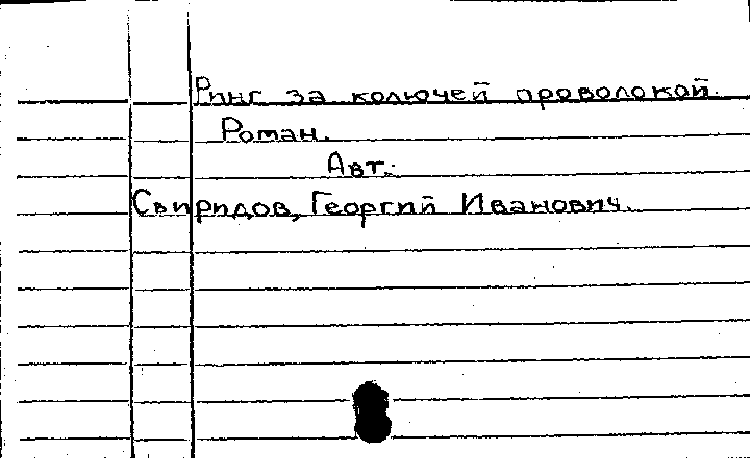 Ринг за колючей проволокой.
Роман.
Авт.:
Свиридов, Георгий Иванович.